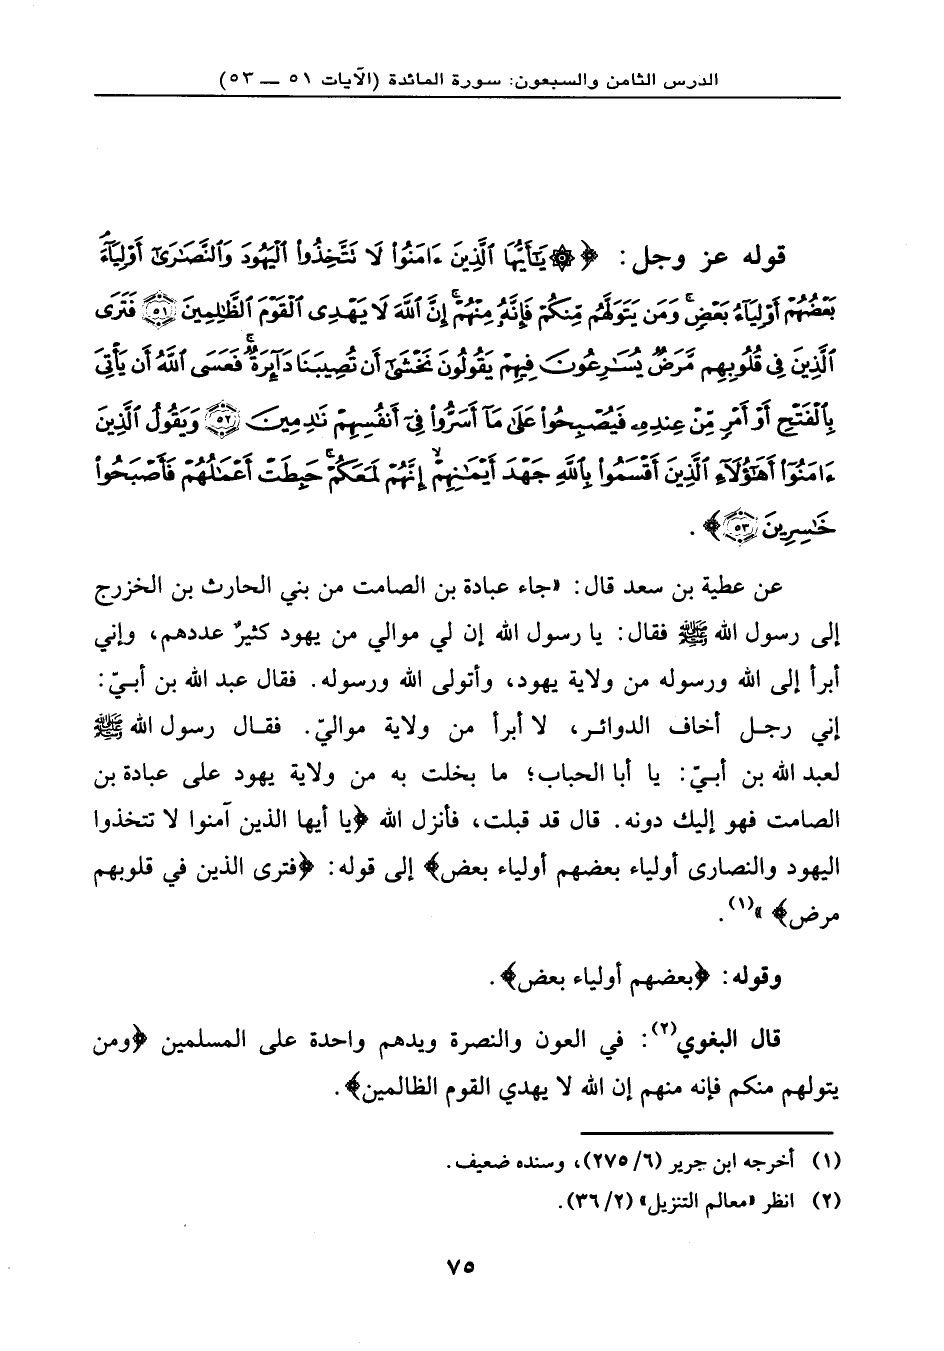 الدرس الثامن والسبعون: سورة المائدة (الآيات ٥١ ــ ٥٣)
قوله عز وجل: ﴿۞ يَٰٓأَيُّهَا ٱلَّذِينَ ءَامَنُوا۟ لَا تَتَّخِذُوا۟ ٱلْيَهُودَ وَٱلنَّصَٰرَىٰٓ أَوْلِيَآءَ ۘ
بَعْضُهُمْ أَوْلِيَآءُ بَعْضٍ ۚ وَمَن يَتَوَلَّهُم مِّنكُمْ فَإِنَّهُۥ مِنْهُمْ ۗ إِنَّ ٱللَّهَ لَا يَهْدِى ٱلْقَوْمَ ٱلظَّٰلِمِينَ ۝٥١ فَتَرَى
ٱلَّذِينَ فِى قُلُوبِهِم مَّرَضٌ يُسَٰرِعُونَ فِيهِمْ يَقُولُونَ نَخْشَىٰٓ أَن تُصِيبَنَا دَآئِرَةٌ ۚ فَعَسَى ٱللَّهُ أَن يَأْتِىَ
بِٱلْفَتْحِ أَوْ أَمْرٍ مِّنْ عِندِهِۦ فَيُصْبِحُوا۟ عَلَىٰ مَآ أَسَرُّوا۟ فِىٓ أَنفُسِهِمْ نَٰدِمِينَ ۝٥٢ وَيَقُولُ ٱلَّذِينَ
ءَامَنُوٓا۟ أَهَٰٓؤُلَآءِ ٱلَّذِينَ أَقْسَمُوا۟ بِٱللَّهِ جَهْدَ أَيْمَٰنِهِمْ ۙ إِنَّهُمْ لَمَعَكُمْ ۚ حَبِطَتْ أَعْمَٰلُهُمْ فَأَصْبَحُوا۟
خَٰسِرِينَ ۝٥٣﴾.
عن عطية بن سعد قال: «جاء عبادة بن الصامت من بني الحارث بن الخزرج
إلى رسول الله ﷺ فقال: يا رسول الله إن لي موالي من يهود كثيرٌ عددهم، وإني
أبرأ إلى الله ورسوله من ولاية يهود، وأتولى الله ورسوله. فقال عبد الله بن أبيّ:
إني رجل أخاف الدوائر، لا أبرأ من ولاية مواليّ. فقال رسول الله ﷺ
لعبد الله بن أبيّ: يا أبا الحباب؛ ما بخلت به من ولاية يهود على عبادة بن
الصامت فهو إليك دونه. قال قد قبلت، فأنزل الله ﴿يا أيها الذين آمنوا لا تتخذوا
اليهود والنصارى أولياء بعضهم أولياء بعض﴾ إلى قوله: ﴿فترى الذين في قلوبهم
مرض﴾ »(١).
وقوله: ﴿بعضهم أولياء بعض﴾.
قال البغوي(٢): في العون والنصرة ويدهم واحدة على المسلمين ﴿ومن
يتولهم منكم فإنه منهم إن الله لا يهدي القوم الظالمين﴾.
(١) أخرجه ابن جرير (٦/ ٢٧٥)، وسنده ضعيف.
(٢) انظر «معالم التنزيل» (٢/ ٣٦).
٧٥